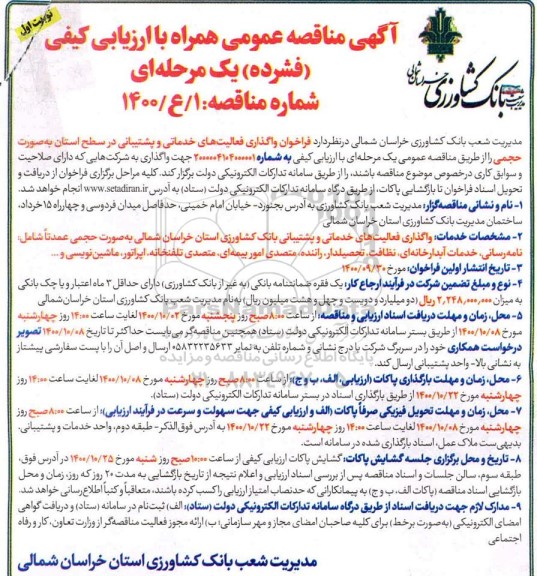 نوبت اول
آگهی مناقصه عمومی همراه با ارزیابی کیفی
(فشرده) یک مرحله‌ای
شماره مناقصه: ۱/ع/۱۴۰۰
بانک کشاورزی
مدیریت شعب بانک کشاورزی خراسان شمالی درنظردارد فراخوان واگذاری فعالیت‌های خدماتی و پشتیبانی در سطح استان به‌صورت
حجمی را از طریق مناقصه عمومی یک مرحله‌ای با ارزیابی کیفی به شماره جهت واگذاری به شرکت‌هایی که دارای صلاحیت
و سوابق کاری درخصوص موضوع مناقصه باشند، را از طریق سامانه تدارکات الکترونیکی دولت برگزار کند. کلیه مراحل برگزاری فراخوان از دریافت و
تحویل اسناد فراخوان تا بازگشایی پاکات، از طریق درگاه سامانه تدارکات الکترونیکی دولت (ستاد) به آدرس www.setadiran.ir انجام خواهد شد.
۱- نام و نشانی مناقصه‌گزار: مدیریت شعب بانک کشاورزی به آدرس بجنورد- خیابان امام خمینی، حدفاصل میدان فردوسی و چهارراه ۱۵خرداد،
ساختمان مدیریت بانک کشاورزی استان خراسان شمالی
۲- مشخصات خدمات: واگذاری فعالیت‌های خدماتی و پشتیبانی بانک کشاورزی استان خراسان شمالی به‌صورت حجمی عمدتاً شامل:
نامه‌رسانی، خدمات آبدارخانه‌ای، نظافت، تحصیلدار، راننده، متصدی امور بیمه‌ای، متصدی تلفنخانه، اپراتور، ماشین‌نویسی و ...
۳- تاریخ انتشار اولین فراخوان: مورخ ۱۴۰۰/۰۹/۳۰
۴- نوع و مبلغ تضمین شرکت در فرآیند ارجاع کار: یک فقره ضمانتنامه بانکی (به غیر از بانک کشاورزی) دارای حداقل ۳ ماه اعتبار و یا چک بانکی
به میزان ۲,۲۴۸,۰۰۰,۰۰۰ ریال (دو میلیارد و دویست و چهل و هشت میلیون ریال) به نام مدیریت شعب بانک کشاورزی استان خراسان‌شمالی
۵- محل، زمان و مهلت دریافت اسناد ارزیابی و مناقصه: از ساعت ۸:۰۰صبح روز پنجشنبه مورخ ۱۴۰۰/۱۰/۰۲ لغایت ساعت ۱۴:۰۰ روز چهارشنبه
مورخ ۱۴۰۰/۱۰/۰۸ از طریق بستر سامانه تدارکات الکترونیکی دولت (ستاد) همچنین مناقصه‌گر می‌بایست حداکثر تا تاریخ ۱۴۰۰/۱۰/۰۸ تصویر
درخواست همکاری خود را در سربرگ شرکت با درج نشانی و شماره تلفن به نمابر ۰۵۸۳۲۲۳۵۶۳۳ ارسال و اصل آن را با پست سفارشی پیشتاز
به نشانی بالا- واحد پشتیبانی ارسال کند.
۶- محل، زمان و مهلت بارگذاری پاکات (ارزیابی، الف، ب و ج): از ساعت ۸:۰۰ صبح روز چهارشنبه مورخ ۱۴۰۰/۱۰/۰۸ لغایت ساعت ۱۴:۰۰ روز
چهارشنبه مورخ ۱۴۰۰/۱۰/۲۲ از طریق بارگذاری اسناد در بستر سامانه تدارکات الکترونیکی دولت (ستاد).
۷- محل، زمان و مهلت تحویل فیزیکی صرفاً پاکات (الف و ارزیابی کیفی جهت سهولت و سرعت در فرآیند ارزیابی): از ساعت ۸:۰۰صبح روز
چهارشنبه مورخ ۱۴۰۰/۱۰/۰۸ لغایت ساعت ۱۴:۰۰ روز چهارشنبه مورخ ۱۴۰۰/۱۰/۲۲ به آدرس فوق‌الذکر- طبقه دوم، واحد خدمات و پشتیبانی.
بدیهی‌ست ملاک عمل، اسناد بارگذاری شده در سامانه است.
۸- تاریخ و محل برگزاری جلسه گشایش پاکات: گشایش پاکات ارزیابی کیفی از ساعت ۱۰:۰۰صبح روز شنبه مورخ ۱۴۰۰/۱۰/۲۵ در آدرس فوق،
طبقه سوم، سالن جلسات و اسناد مناقصه پس از بررسی اسناد ارزیابی و اعلام نتیجه از تاریخ بازگشایی به مدت ۲۰ روز که روز، زمان و محل
بازگشایی اسناد مناقصه (پاکات الف، ب و ج) به پیمانکارانی که حدنصاب امتیاز ارزیابی را کسب کرده باشند، متعاقباً و کتباً اطلاع‌رسانی خواهد شد.
۹- مدارک لازم جهت دریافت اسناد از طریق درگاه سامانه تدارکات الکترونیکی دولت (ستاد): الف) ثبت‌نام در سامانه (ستاد) و دریافت گواهی
امضای الکترونیکی (به‌صورت برخط) برای کلیه صاحبان امضای مجاز و مهر سازمانی؛ ب) ارائه مجوز فعالیت مناقصه‌گر از وزارت تعاون، کار و رفاه
اجتماعی
مدیریت شعب بانک کشاورزی استان خراسان شمالی